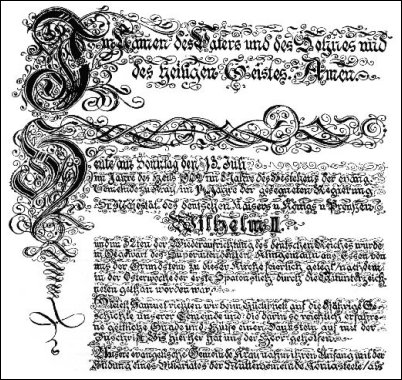 Im Namen des Vaters und des Sohnes und
des heiligen Geistes. Amen.
Heute am Sonntag den 13. Juli
im Jahre des Heils 1902 im Jahre des Bestehens der evang.
Gemeinde zu Kray im 14. Jahre der gesegneten Regierung
Sr. Majestät des deutschen Kaisers u. Königs v. Preußen
Wilhelm II.
und im 32ten der Wiederaufrichtung des deutschen Reiches wurde
in Gegenwart des Superintendenten Klingemann aus Essen von
uns der Grundstein zu dieser Kirche feierlich gelegt, nachdem
in der Osterwoche der erste Spatenstich durch die
gethan worden war.
Mit Samuel richten wir beim Rückblick auf die jährige Ge-
schichte unserer Gemeinde und die darin so reichlich erfah-
rene göttliche Gnade und Hülfe einen Denkstein auf mit der
Inschrift: Bis hierher hat uns der Herr geholfen.
Unsere evangelische Gemeinde Kray nahm ihren Anfang mit der
Bildung eines Vikariates der Muttergemeinde Königssteele als